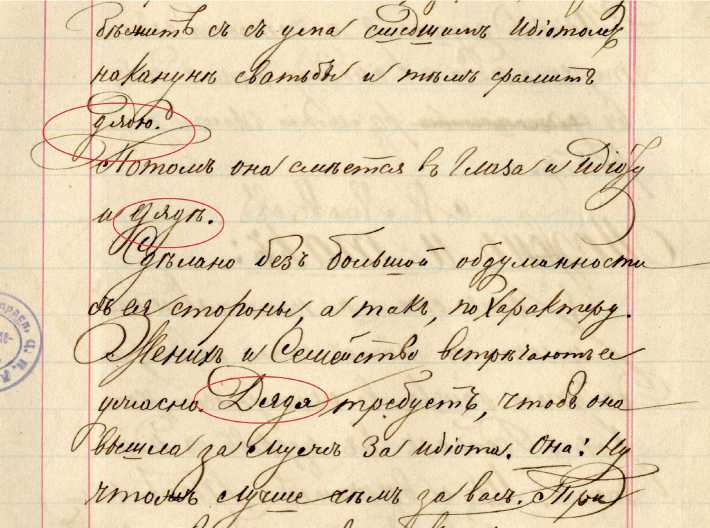 бѣжитъ съ съ ума сшедшимъ Идіотомъ
наканунѣ свадьбы и тѣмъ срамитъ
дядю.
Потомъ она смѣется въ глаза и Идіоту
и дядѣ.
Сдѣлано безъ большой обдуманности
съ ея стороны, а такъ, по характеру.
Женихъ и Семейство встрѣчаютъ ее
ужасно. Дядя требуетъ, чтобъ она
вышла за мужъ за идіота. Она: Ну
чтожъ лучше чѣмъ за васъ. При